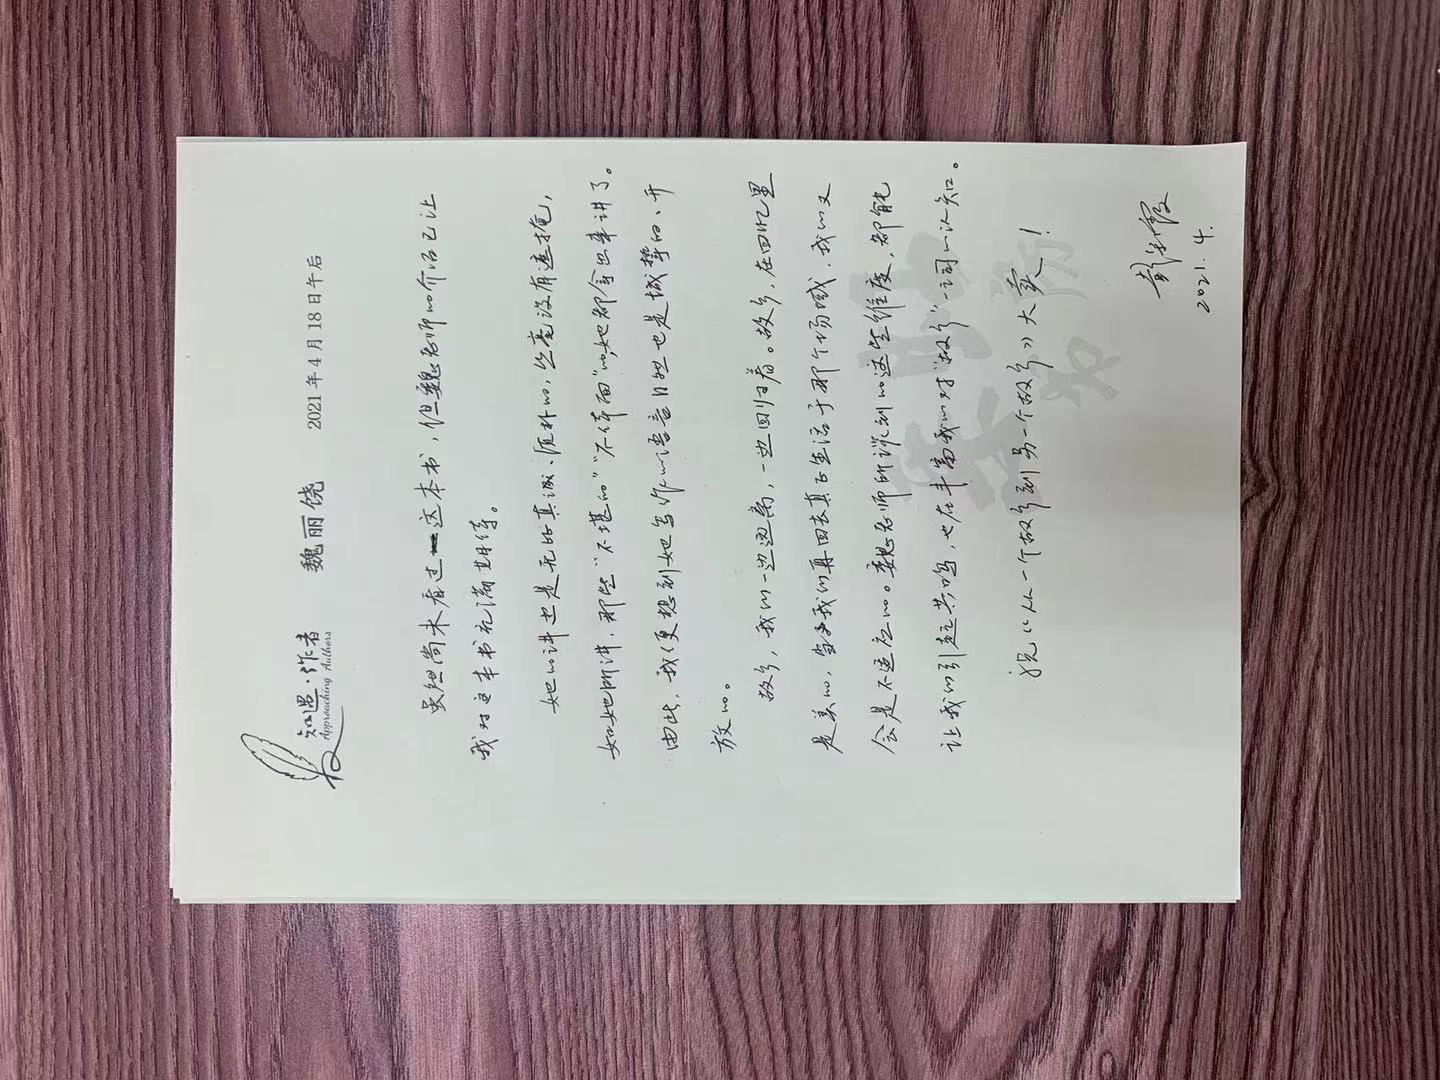 知遇·作者
Approaching Authors
魏丽饶
2021年4月18日午后
虽然尚未看过这本书，但魏老师的介绍已让
我对这本书充满期待。
她的讲述是无比真诚、质朴的，丝毫没有遮掩，
如她所讲，那些“不堪的”“不体面”的，她都拿出来讲了。
由此，我便想到她写作的语言自然也是诚挚的、开
放的。
故乡，我们一边远离，一边回归着。故乡，在回忆里
是美的，当我们再回去真正生活于那个场域，我们又
会是不适应的。魏老师所谈到的这些维度，都能
让我们引起共鸣，也在丰富我们对“故乡”一词的认知。
祝《从一个故乡到另一个故乡》大卖！
2021.4.